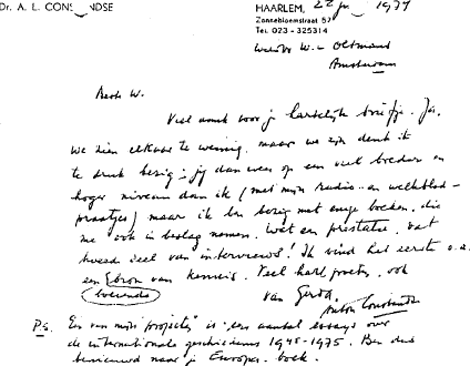 Dr. A. L. CONS NDSE
HAARLEM, 22 jan 1977
Zonnebloemstraat 57
Tel. 023 - 325314
W. Oltmans
Amsterdam
Beste W.
Veel dank voor je hartelijk briefje. Ja,
we zien elkaar te weinig, maar we zijn denk ik
te druk bezig - jij dan weer op een veel breder en
hoger niveau dan ik (met mijn Radio- en weekblad-
praatjes) maar ik ben bezig met enige boeken, die
me ook in beslag nemen. Wat een prestatie, dat
tweede deel van interviews! Ik vind het eerste o.a.
een bron van kennis. Veel hart. groeten, ook
(boeiende)
van Gerda,
Anton Constandse
P.S. Een van mijn "projecten" is een aantal essays over
de internationale geschiedenis 1945-1975. Ben dus
benieuwd naar je Europa-boek.